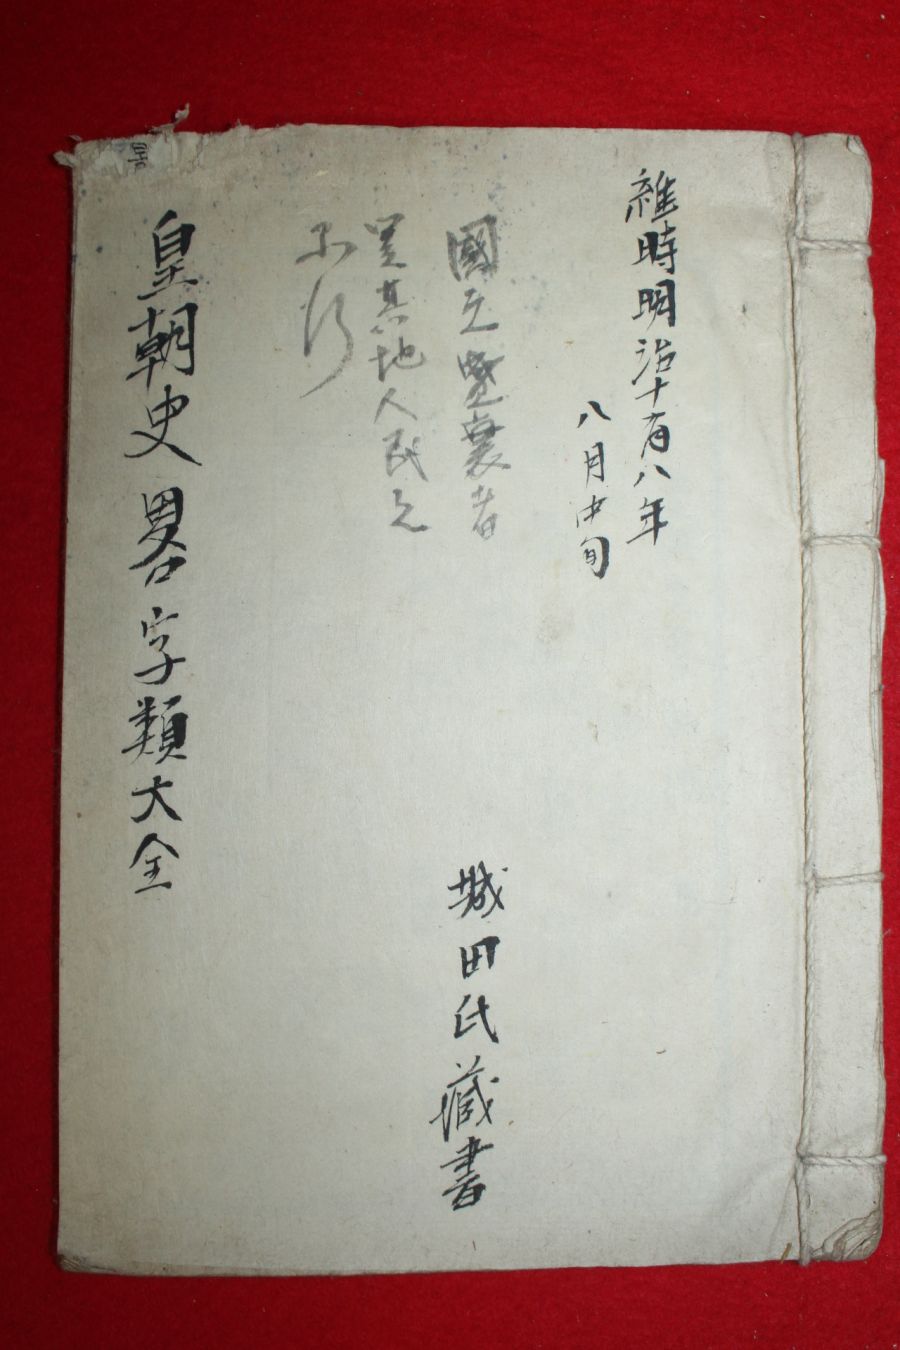 維時明治十有八年
八月中旬
國之盛衰者
是其地人民之
城田氏蔵書
皇朝史畧字類大全